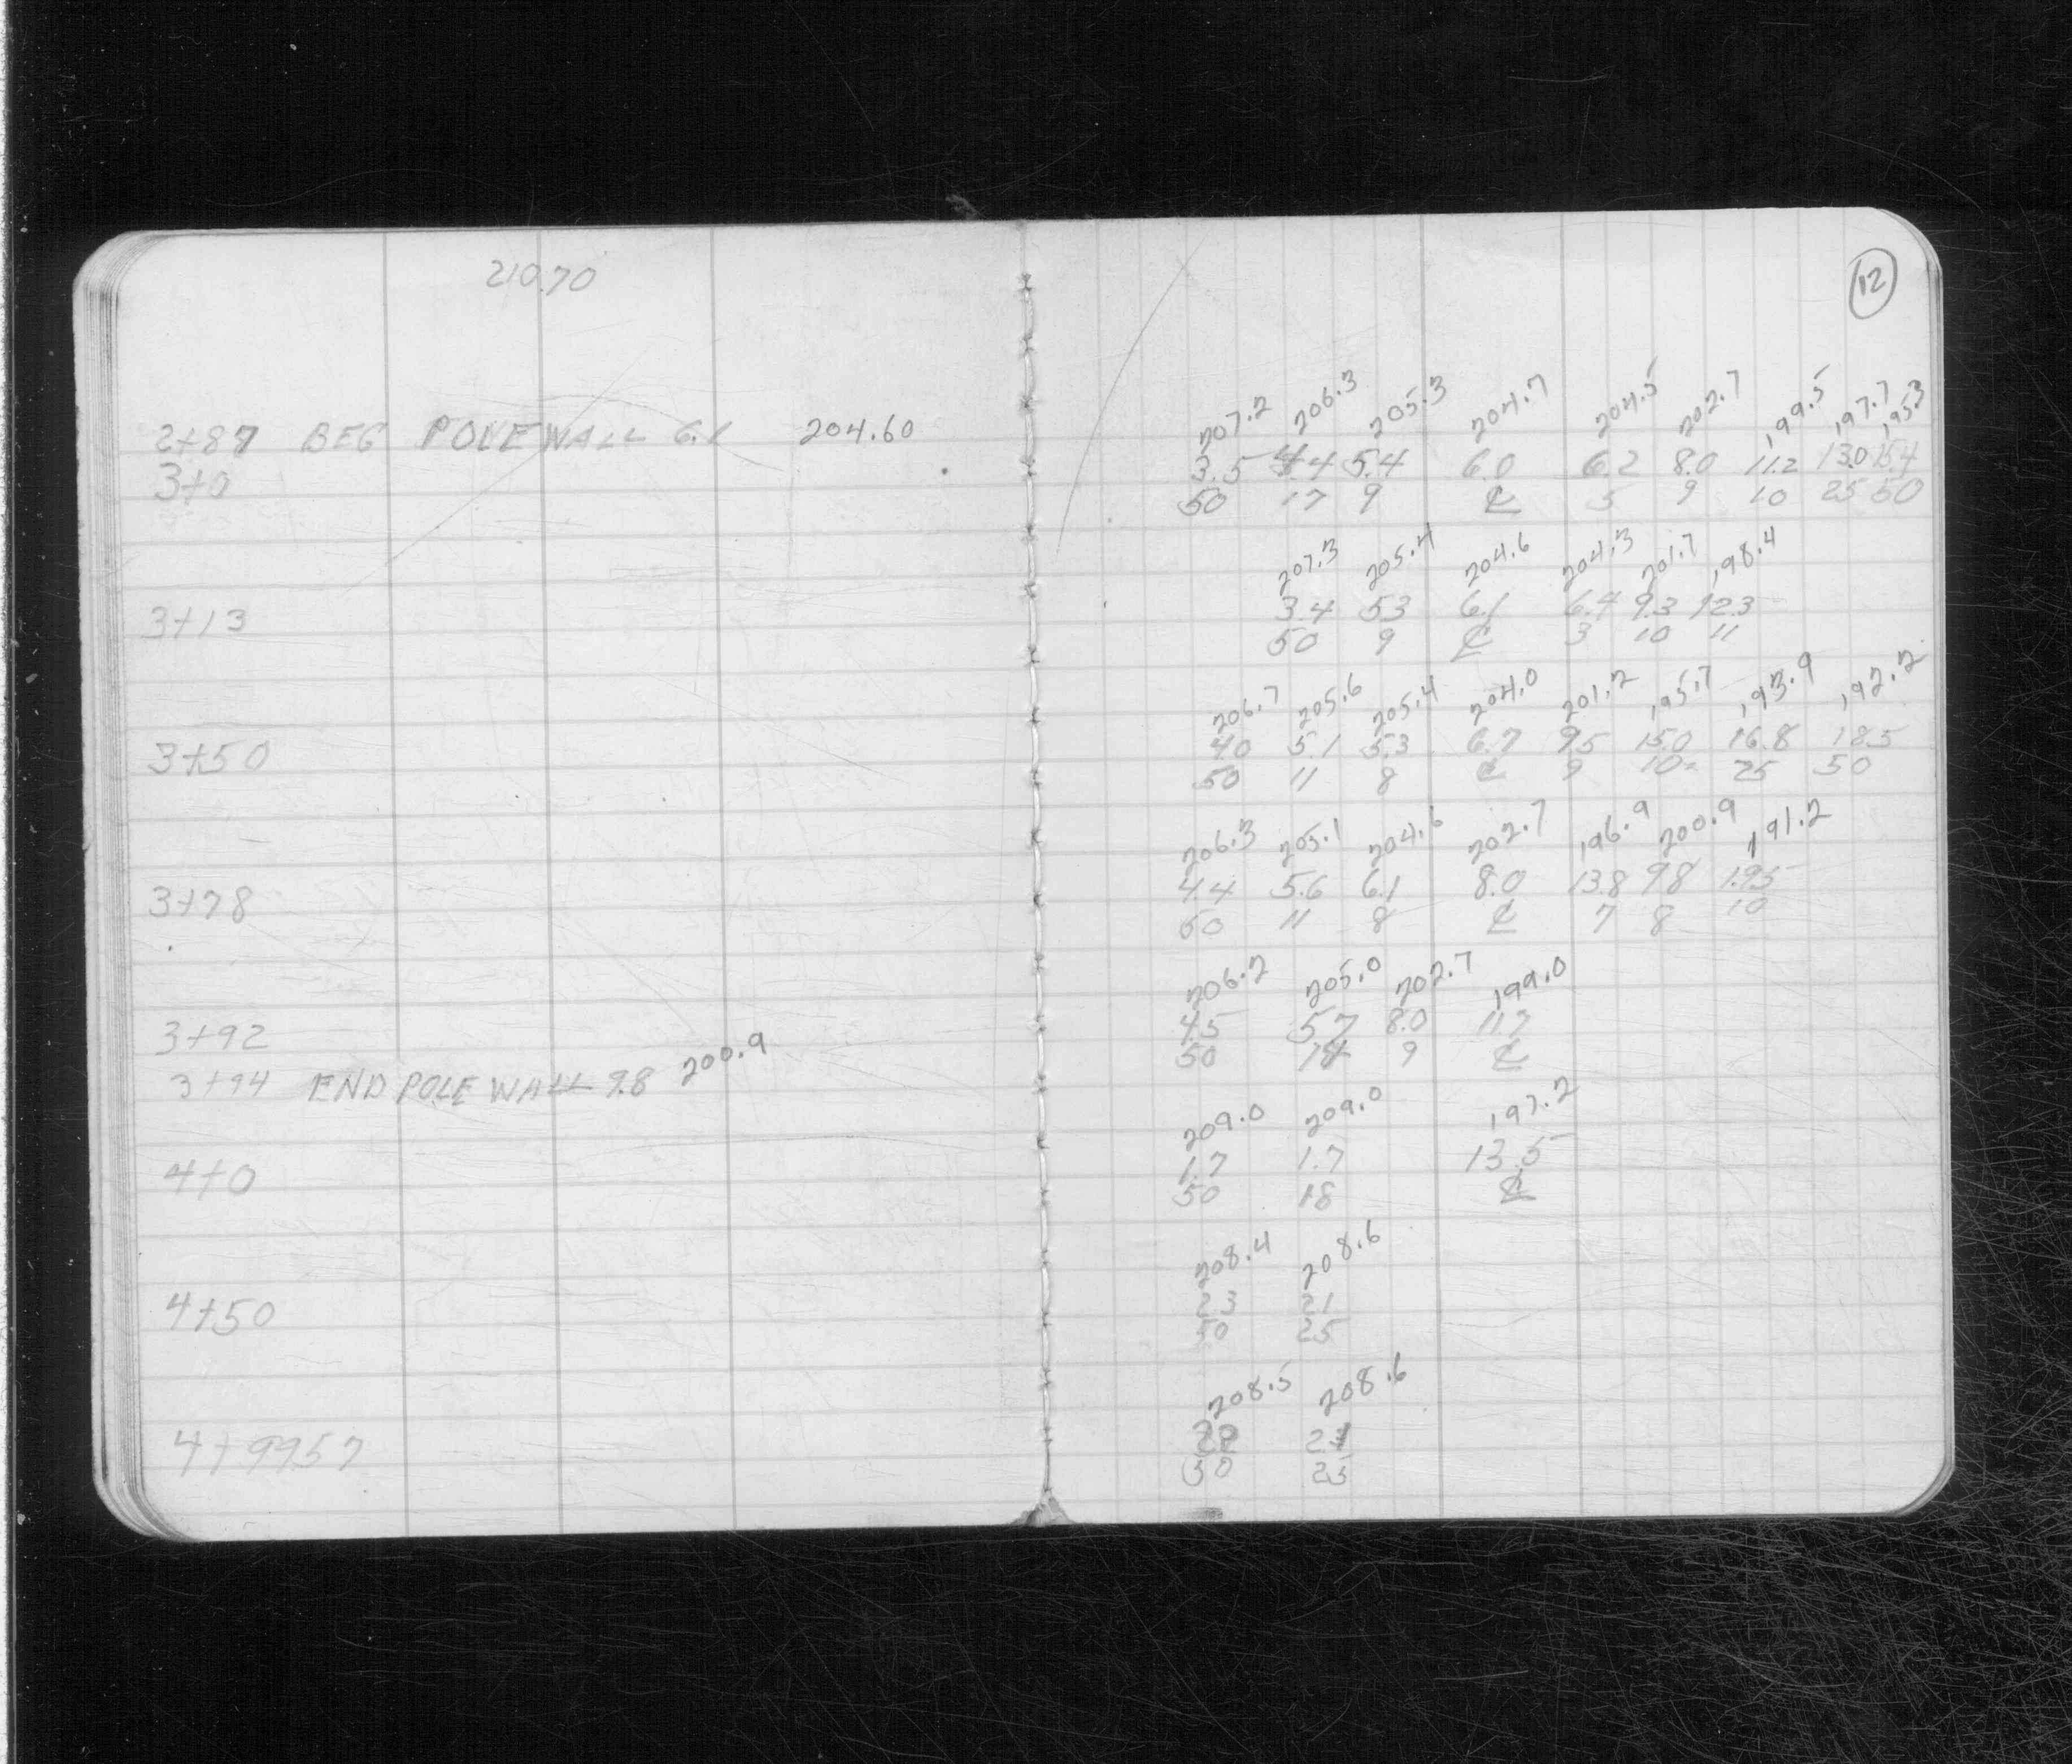 210.70
12
207.2 206.3 205.3 204.7 204.5 202.7 199.5 197.7 195.3
2+87 BEG POLE WALL 6.1 204.60
3.5 4.4 5.4 6.0 6.2 8.0 11.2 13.0 15.4
3+0
50 17 9 ℄ 5 9 10 25 50
207.3 205.4 204.6 204.3 201.7 198.4
3+13
3.4 53 6.1 6.4 9.3 12.3
50 9 ℄ 3 10 11
206.7 205.6 205.4 204.0 201.2 195.7 193.9 192.2
3+50
40 5.1 5.3 6.7 95 150 16.8 18.5
50 11 8 ℄ 9 10 25 50
206.3 205.1 204.6 202.7 196.9 200.9 191.2
3+78
4.4 5.6 6.1 8.0 13.8 98 19.5
50 11 8 ℄ 7 8 10
206.2 205.0 202.7 199.0
3+92
45 57 8.0 11.7
50 9 ℄
3+94 END POLE WALL 9.8 200.9
209.0 209.0 197.2
4+0
1.7 1.7 13.5
50 18 ℄
208.4 208.6
4+50
23 21
50 25
208.5 208.6
4+9957
22 21
50 23